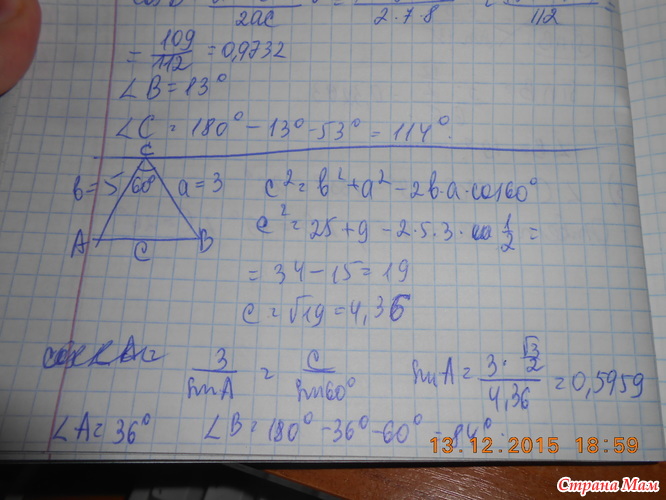 2ac 2·7·8 112
= 109/112 = 0,9732
∠B = 83°
∠C = 180° - 13° - 53° = 114°.
C
в = 5 60° a = 3 c² = в² + a² - 2в·a·cos60°
c² = 25 + 9 - 2·5·3· 1/2 =
A C B
= 34 - 15 = 19
c = √19 = 4,36
3/sinA = c/sin60° sinA = 3·√3/2 / 4,36 = 0,5959
∠A = 36° ∠B = 180° - 36° - 60° = 84°.
13.12.2015 18:59
Страна Мам